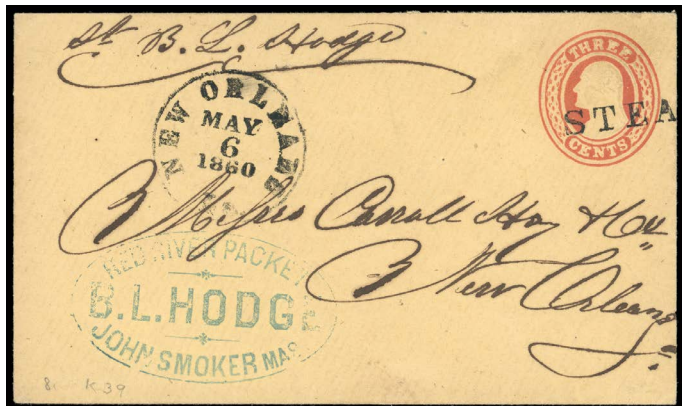 St. B. L. Hodge
THREE
CENTS
STEA
NEW ORLEANS
MAY
6
1860
Messrs Carroll Hoy & Co
New Orleans
RED RIVER PACKET
B.L.HODGE
JOHN SMOKER MAS
8. K-39